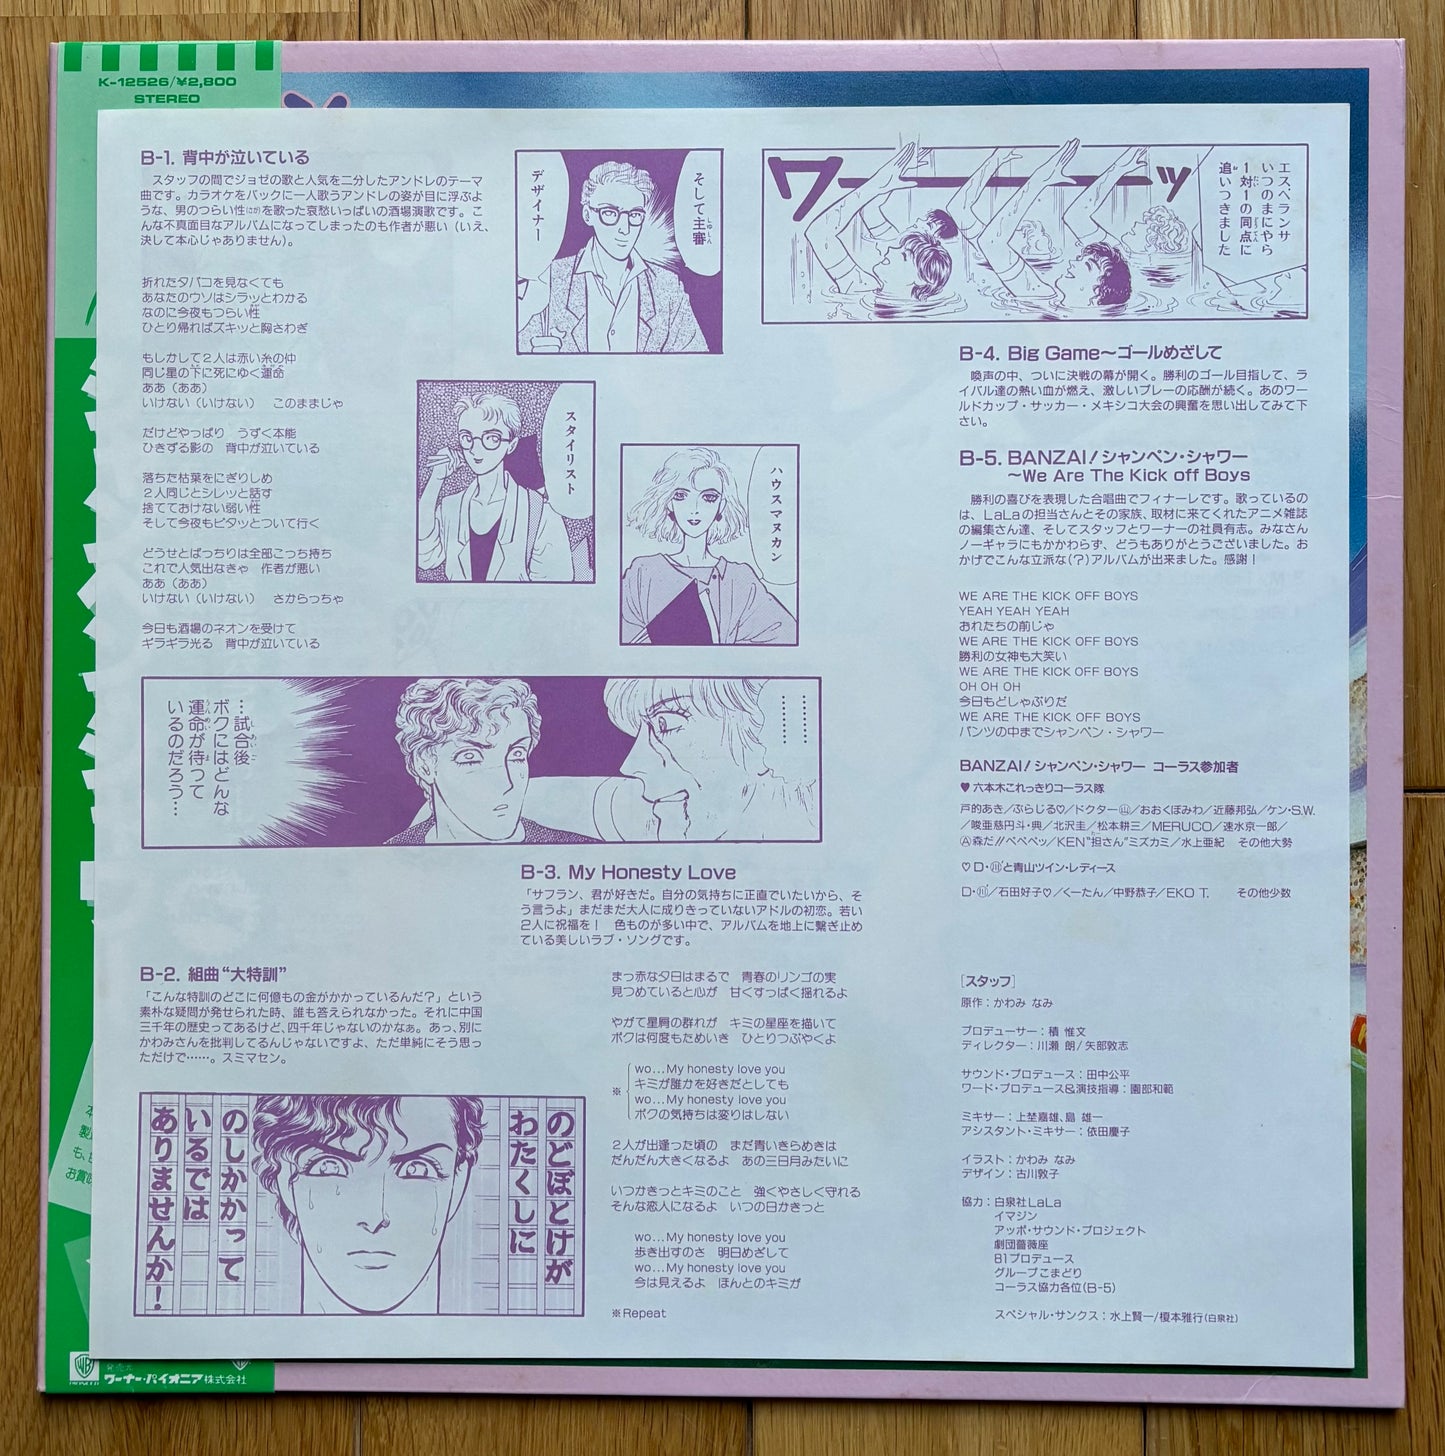 K-12526/¥2,800
STEREO
B-1. 背中が泣いている
スタッフの間でジョゼの歌と人気を二分したアンドレのテーマ
曲です。カラオケをバックに一人歌うアンドレの姿が目に浮ぶよ
うな、男のつらい性(さが)を歌った哀愁いっぱいの酒場演歌です。こ
んな不真面目なアルバムになってしまったのも作者が悪い(いえ、
決して本心じゃありません)。
折れたタバコを見なくても
あなたのウソはシラッとわかる
なのに今夜もつらい性
ひとり帰ればズキッと胸さわぎ
もしかして2人は赤い糸の仲
同じ星の下に死にゆく運命
ああ(ああ)
いけない(いけない) このままじゃ
だけどやっぱり うずく本能
ひきずる影の 背中が泣いている
落ちた枯葉をにぎりしめ
2人同じとシレッと話す
捨てておけない弱い性
そして今夜もピタッとついて行く
どうせとばっちりは全部こっち持ち
これで人気出なきゃ 作者が悪い
ああ(ああ)
いけない(いけない) さからっちゃ
今日も酒場のネオンを受けて
ギラギラ光る 背中が泣いている
そして主審
デザイナー
スタイリスト
ハウスマヌカン
ワーーッ
エスペランサ
いつのまにやら
1対1の同点に
追いつきました
…試合後
ボクにはどんな
運命が待って
いるのだろう…
………
………
B-2. 組曲“大特訓”
「こんな特訓のどこに何億もの金がかかっているんだ?」という
素朴な疑問が発せられた時、誰も答えられなかった。それに中国
三千年の歴史ってあるけど、四千年じゃないのかなぁ。あっ、別に
かわみさんを批判してるんじゃないですよ、ただ単純にそう思っ
ただけで……。スミマセン。
のどぼとけが
わたくしに
のしかかって
いるでは
ありませんか!
B-3. My Honesty Love
「サフラン、君が好きだ。自分の気持ちに正直でいたいから、そ
う言うよ」まだまだ大人に成りきっていないアドルの初恋。若い
2人に祝福を! 色ものが多い中で、アルバムを地上に繋ぎ止め
ている美しいラブ・ソングです。
まっ赤な夕日はまるで 青春のリンゴの実
見つめていると心が 甘くすっぱく揺れるよ
やがて星屑の群れが キミの星座を描いて
ボクは何度もためいき ひとりつぶやくよ
wo…My honesty love you
キミが誰かを好きだとしても
※ wo…My honesty love you
ボクの気持ちは変りはしない
2人が出逢った頃の まだ青いきらめきは
だんだん大きくなるよ あの三日月みたいに
いつかきっとキミのこと 強くやさしく守れる
そんな恋人になるよ いつの日かきっと
wo…My honesty love you
歩き出すのさ 明日めざして
wo…My honesty love you
今は見えるよ ほんとのキミが
※Repeat
B-4. Big Game〜ゴールめざして
喚声の中、ついに決戦の幕が開く。勝利のゴール目指して、ラ
イバル達の熱い血が燃え、激しいプレーの応酬が続く。あのワー
ルドカップ・サッカー・メキシコ大会の興奮を思い出してみて下
さい。
B-5. BANZAI!シャンペン・シャワー
〜We Are The Kick off Boys
勝利の喜びを表現した合唱曲でフィナーレです。歌っているの
は、LaLaの担当さんとその家族、取材に来てくれたアニメ雑誌
の編集さん達、そしてスタッフとワーナーの社員有志。みなさん
ノーギャラにもかかわらず、どうもありがとうございました。お
かげでこんな立派な(?)アルバムが出来ました。感謝!
WE ARE THE KICK OFF BOYS
YEAH YEAH YEAH
おれたちの前じゃ
WE ARE THE KICK OFF BOYS
勝利の女神も大笑い
WE ARE THE KICK OFF BOYS
OH OH OH
今日もどしゃぶりだ
WE ARE THE KICK OFF BOYS
パンツの中までシャンペン・シャワー
BANZAI!シャンペン・シャワー コーラス参加者
♥六本木これっきりコーラス隊
戸的あき/ぷらじる♡/ドクター㊤/おおくぼみわ/近藤邦弘/ケン・S.W.
/唆亜慈円斗・典/北沢圭/松本耕三/MERUCO/速水京一郎/
Ⓐ森だ!!ペペペッ/KEN“担さん”ミズカミ/水上亜紀 その他大勢
♡D・㊉と青山ツイン・レディース
D・㊉/石田好子♡/くーたん/中野恭子/EKO T. その他少数
[スタッフ]
原作:かわみ なみ
プロデューサー:積 惟文
ディレクター:川瀬 朗/矢部敦志
サウンド・プロデュース:田中公平
ワード・プロデュース&演技指導:園部和範
ミキサー:上埜嘉雄、島 雄一
アシスタント・ミキサー:依田慶子
イラスト:かわみ なみ
デザイン:古川敦子
協力:白泉社LaLa
イマジン
アッポ・サウンド・プロジェクト
劇団薔薇座
81プロデュース
グループこまどり
コーラス協力各位(B-5)
スペシャル・サンクス:水上賢一/榎本雅行(白泉社)
発売元
ワーナー・パイオニア株式会社